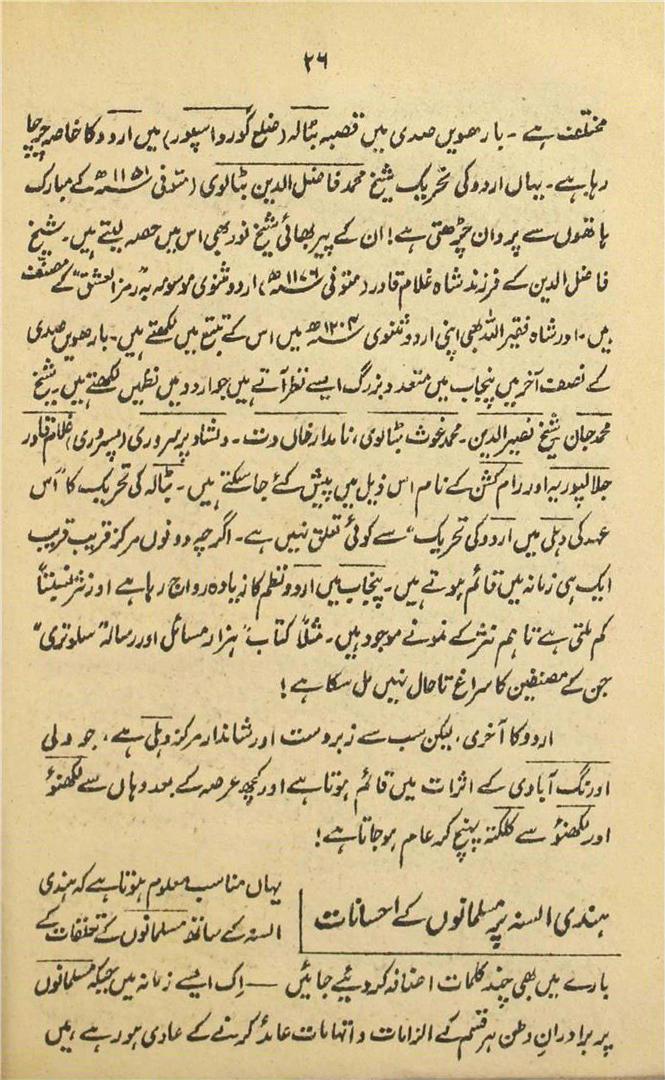 ۲۶
مختلف ہے ۔ بارھویں صدی میں قصبہ بٹالہ (ضلع گورداسپور) میں اردو کا خاصہ چرچا
رہا ہے ۔ یہاں اردو کی تحریک شیخ محمد فاضل الدین بٹالوی (متوفی ۱۱۵۱ھ) کے مبارک
ہاتھوں سے پروان چڑھتی ہے! ان کے پیر بھائی شیخ نور بھی اس میں حصہ لیتے ہیں۔ شیخ
فاضل الدین کے فرزند شاہ غلام قادر (متوفی ۱۱۷۶ھ) اردو مثنوی موسومہ بہ "رمز العشق" کے مصنف
ہیں ۔ اور شاہ فقیر اللہ بھی اپنی اردو مثنوی ۱۲۰۴ھ میں اس کے تتبع میں لکھتے ہیں۔ بارھویں صدی
کے نصف آخر میں پنجاب میں متعدد بزرگ ایسے نظر آتے ہیں جو اردو میں نظمیں لکھتے ہیں۔ شیخ
محمد جان شیخ نصیر الدین ۔ محمد غوث بٹالوی، نامدار خاں دت ۔ دلشاد پسروری (پسروری) غلام قادر
جلالپوریہ اور رام کشن کے نام اس ذیل میں پیش کئے جا سکتے ہیں ۔ بٹالہ کی تحریک کا "اس
عہد کی دہلی میں اردو کی تحریک" سے کوئی تعلق نہیں ہے ۔ اگرچہ دونوں مرکز قریب قریب
ایک ہی زمانہ میں قائم ہوتے ہیں ۔ پنجاب میں اردو نظم کا زیادہ رواج رہا ہے اور نثر نسبتاً
کم ملتی ہے تاہم نثر کے نمونے موجود ہیں ۔ مثلاً کتاب "ہزار مسائل اور رسالہ "سلوتری"
جن کے مصنفین کا سراغ تاحال نہیں مل سکا ہے!
اردو کا آخری، لیکن سب سے زبردست اور شاندار مرکز دہلی ہے، جو ولی
اورنگ آبادی کے اثرات میں قائم ہوتا ہے اور کچھ عرصہ کے بعد وہاں سے لکھنؤ
اور لکھنؤ سے کلکتہ پہنچ کر عام ہو جاتا ہے!
ہندی السنہ پر مسلمانوں کے احسانات
یہاں مناسب معلوم ہوتا ہے کہ ہندی
السنہ کے ساتھ مسلمانوں کے تعلقات کے
بارے میں بھی چند کلمات اضافہ کر دیئے جائیں — اِک ایسے زمانہ میں جبکہ مسلمانوں
پر برادرانِ وطن ہر قسم کے الزامات و اتہامات عائد کرنے کے عادی ہو رہے ہیں